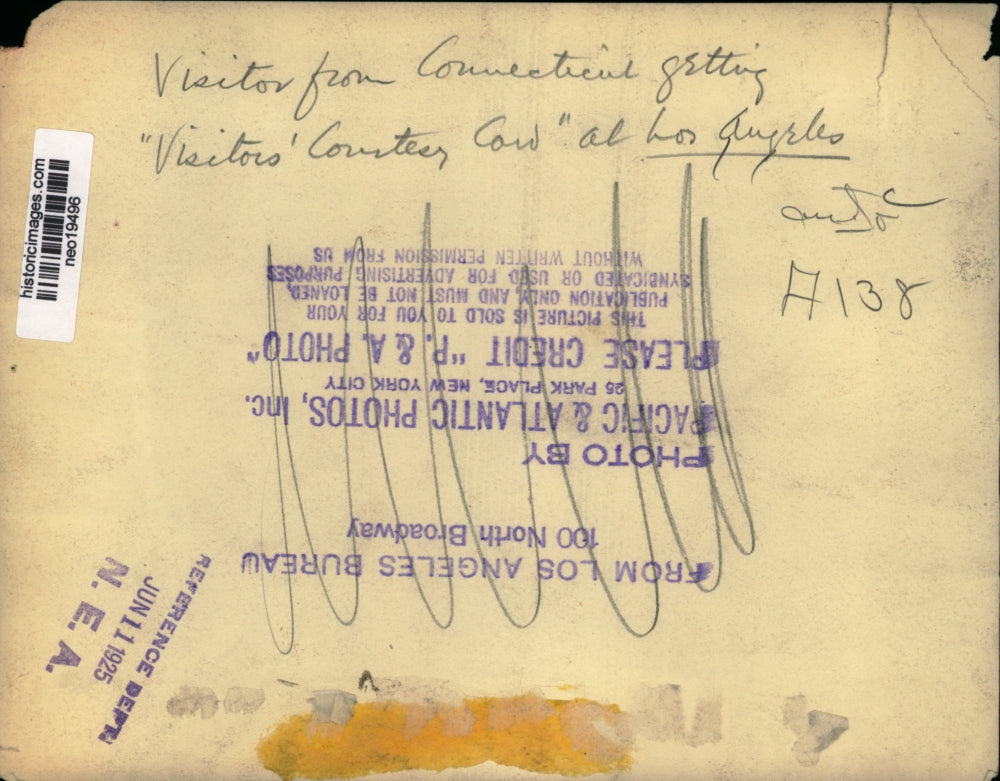 Visitor from Connecticut getting
"Visitors' Courtesy Card" at Los Angeles
A138
historicimages.com
neo19496
FROM LOS ANGELES BUREAU
100 North Broadway
PHOTO BY
PACIFIC & ATLANTIC PHOTOS, Inc.
25 PARK PLACE, NEW YORK CITY
PLEASE CREDIT "P. & A. PHOTO"
THIS PICTURE IS SOLD TO YOU FOR YOUR
PUBLICATION ONLY, AND MUST NOT BE LOANED,
SYNDICATED OR USED FOR ADVERTISING PURPOSES
WITHOUT WRITTEN PERMISSION FROM US
REFERENCE DEPT.
JUN 11 1925
N. E. A.